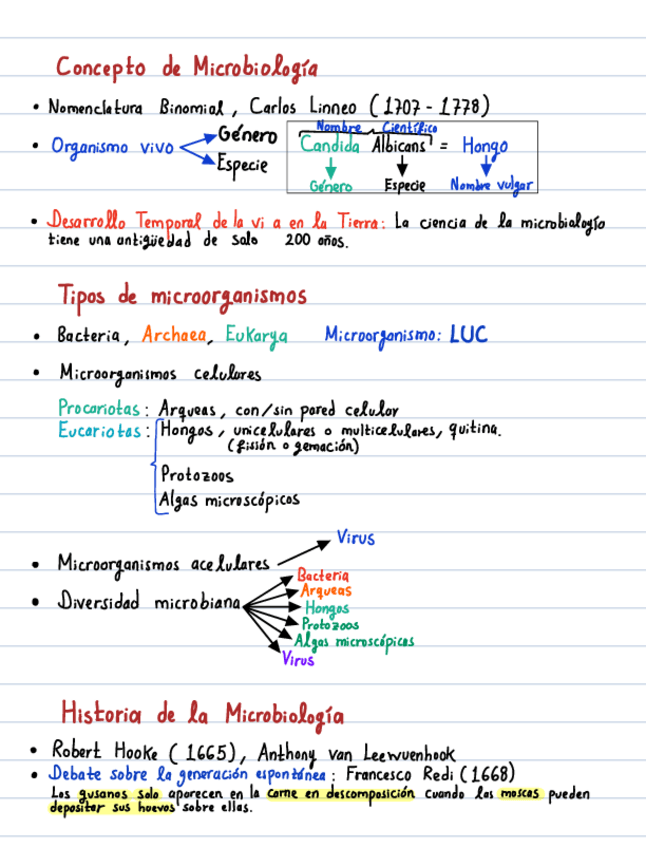 Concepto de Microbiología
• Nomenclatura Binomial, Carlos Linneo (1707 - 1778)
• Organismo vivo
Género
Especie
Nombre Científico
Candida Albicans = Hongo
Género Especie Nombre vulgar
• Desarrollo Temporal de la vi a en la Tierra: La ciencia de la microbiología
tiene una antigüedad de solo 200 años.
Tipos de microorganismos
• Bacteria, Archaea, Eukarya Microorganismo: LUC
• Microorganismos celulares
Procariotas: Arqueas, con/sin pared celular
Eucariotas: Hongos, unicelulares o multicelulares, quitina.
(fisión o gemación)
Protozoos
Algas microscópicos
• Microorganismos acelulares
Virus
• Diversidad microbiana
Bacteria
Arqueas
Hongos
Protozoos
Algas microscópicas
Virus
Historia de la Microbiología
• Robert Hooke (1665), Anthony van Leewuenhook
• Debate sobre la generación espontánea: Francesco Redi (1668)
Los gusanos solo aparecen en la carne en descomposición cuando las moscas pueden
depositar sus huevos sobre ellas.